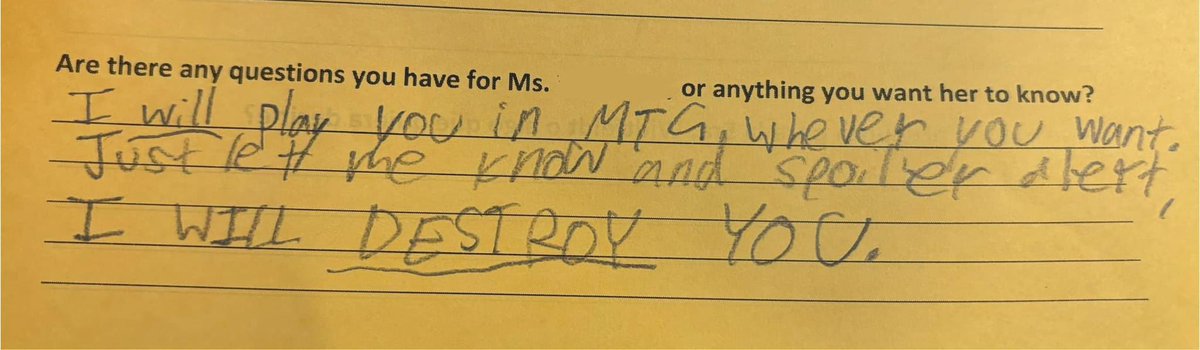 Are there any questions you have for Ms. or anything you want her to know?
I will play you in MTG, whever you want.
Just lett me know and spoiler alert,
I WILL DESTROY YOU.